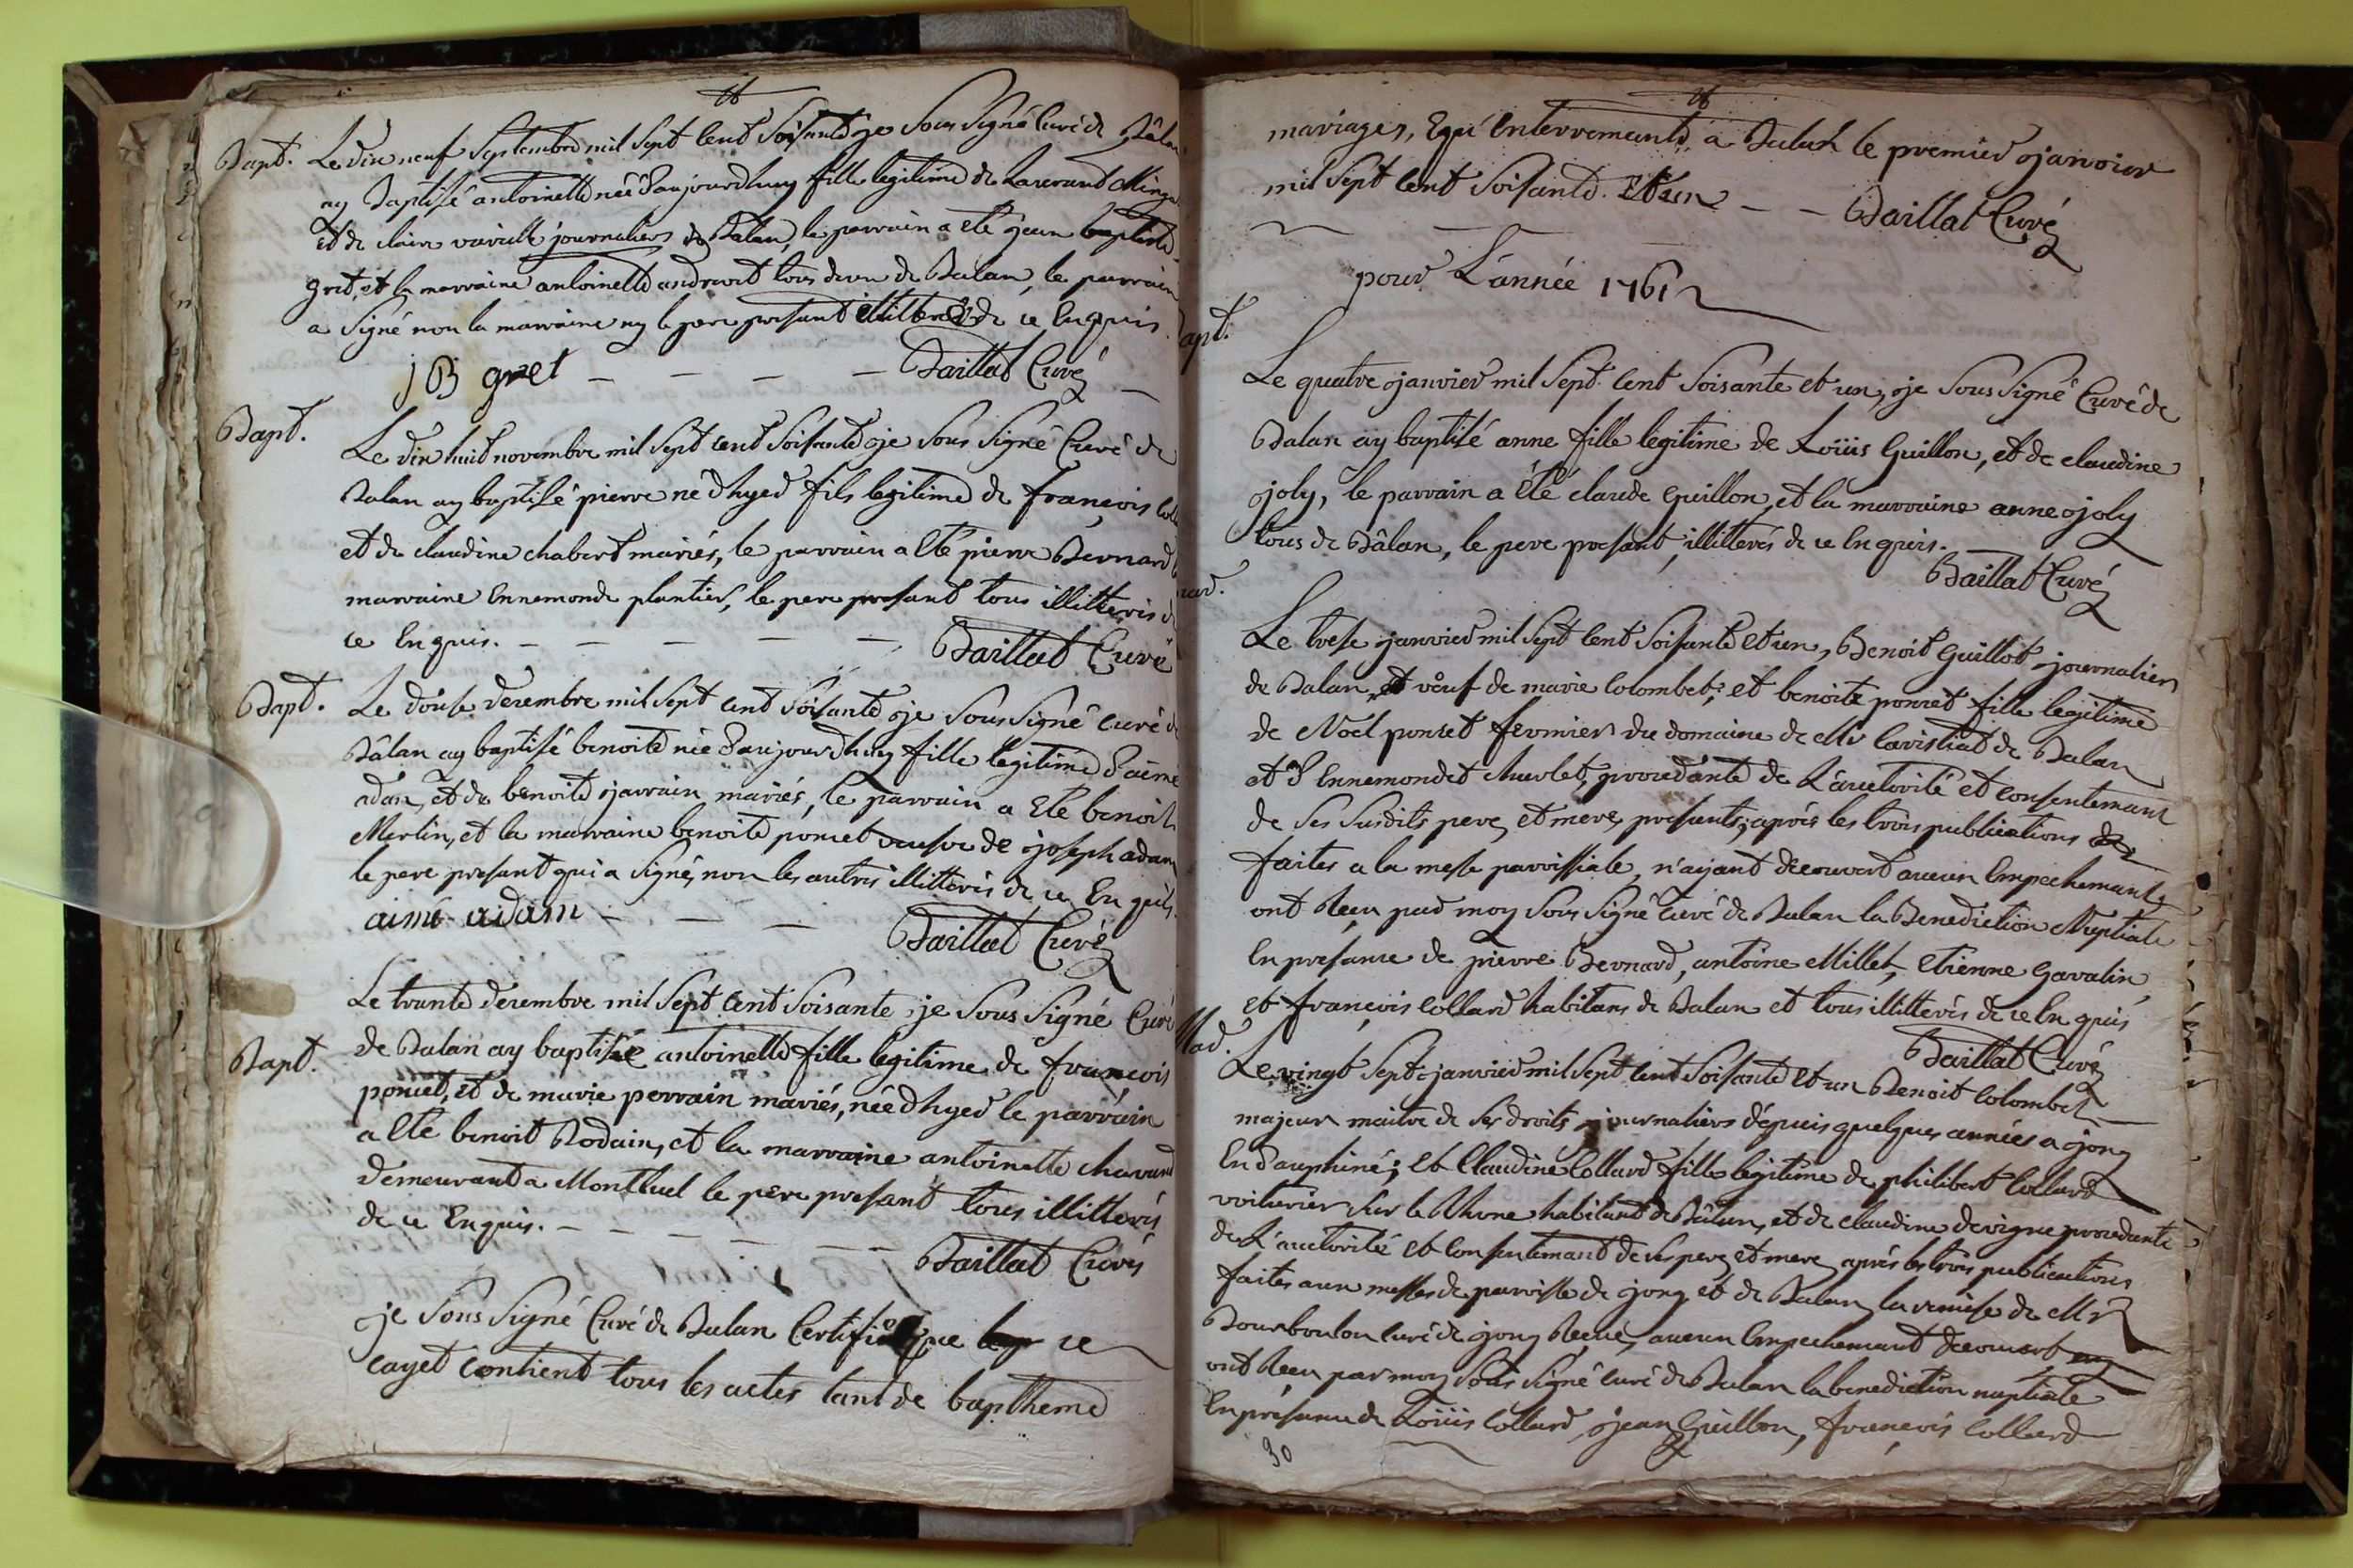 Bapt. Le dix neuf Septembre mil Sept Cent Soisante je Sous Signé Curé de Bâlan
ay Baptisé antoinette née d'aujourdhuy fille legitime de
Et de claire journaliers de Balan, le parrain a Eté jean baptiste
gret, et la marraine antoinette tous deux de Balan, le parrain
a Signé non la marraine ny le pere present illitterés de ce Enquis.
j B gret — — — — Baillat Curé —
Bapt.
Le dix huit novembre mil Sept Cent Soisante je Sous Signé Curé de
Balan ay baptisé pierre né d'hyer fils legitime de françois
et de claudine chabert mariés, le parrain a Eté pierre Bernard
marraine Ennemonde plantier, le pere present tous illitterés de
ce Enquis. — — — — — Baillat Curé
Bapt. Le douse decembre mil Sept Cent Soisante je Sous Signé Curé de
Bâlan ay baptisé benoite née d'aujourdhuy fille legitime d'aimé
adam, et de benoite jarrain mariés, le parrain a Eté benoit
Merlin, et la marraine benoite poncet veufve de joseph adam
le pere present qui a Signé, non les autres illitterés de ce Enquis.
aimé adam — — — Baillat Curé
Le trante decembre mil Sept Cent Soisante je Sous Signé Curé
Bapt. de Balan ay baptisé antoinette fille legitime de françois
poncet, et de marie perrain mariés, née d'hyer le parrain
a Eté benoit Rodain, et la marraine antoinette
demeurant a Montluel le pere present tous illitterés
de ce Enquis. — — — — — —
Baillat Curé
je Sous Signé Curé de Balan Certifie que ce
cayet contient tous les actes tant de baptheme
mariages, Enterrements, a Balan le premier janvier
mil Sept Cent Soisante. Et un — — Baillat Curé
pour L'année 1761
apt.
Le quatre janvier mil Sept Cent Soisante et un, je Sous Signé Curé de
Balan ay baptisé anne fille legitime de Loüis Guillon, et de claudine
joly, le parrain a Eté claude Guillon, et la marraine anne joly
tous de Bâlan, le pere present, illitterés de ce Enquis.
Baillat Curé
Le trese janvier mil Sept Cent Soisante et un, Benoit Guillot journalier
de Balan, et veuf de marie Colombet; et benoite poncet fille legitime
de Noel poncet fermier du domaine de Mr de Balan
et d'Ennemondet procedante de L'auctorité et consentemant
de Ses Susdits pere, et mere, presents; après les trois publications
faites a la messe parroissiale, n'ayant decouvert aucun Empechemant,
ont Reçu par moy Sous Signé Curé de Balan la Benediction Nuptiale
En presance de pierre Bernard, antoine Millet, Etienne Gavalin,
et françois Collard habitans de Balan et tous illitterés de ce Enquis
Baillat Curé
Le vingt Sept janvier mil Sept Cent Soisante et un Benoit Colombet
majeur maitre de Ses droits, journaliers dépuis quelques années a jong
En dauphiné; et Claudine Collard fille legitime de philibert Collard
voiturier Sur le Rhone habitant de Bâlan, et de claudine devigne procedante
de L'auctorité et Consentemant de Ses pere, et mere, après les trois publications
faites aux messes de parroisse de jong et de Balan, la remise de Mr
Bourboulon curé de jong Reçuë, aucun Empechemant decouvert
ont Reçu par moy Sous Signé Curé de Balan la benediction nuptiale
En presance de Loüis Collard, jean Guillon, françois Collard
30